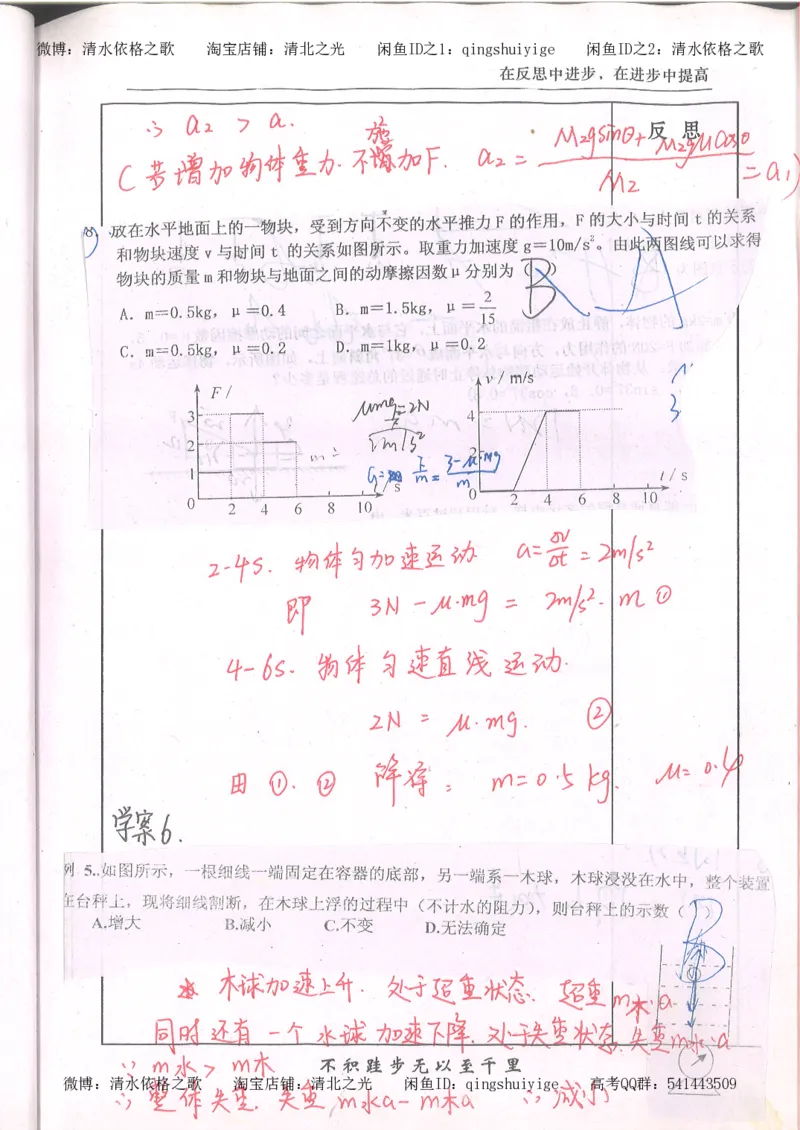 微博：清水依格之歌 淘宝店铺：清北之光 闲鱼ID之1：qingshuiyige 闲鱼ID之2：清水依格之歌
在反思中进步，在进步中提高
反思
∴ a₂ > a.
C 若增加物体重力. 不增加F. a₂ = (M₂gsinθ+M₂gμcosθ)/M₂ = a₁)
施
8) 放在水平地面上的一物块，受到方向不变的水平推力 F 的作用，F 的大小与时间 t 的关系
和物块速度 v 与时间 t 的关系如图所示。取重力加速度 g＝10m/s²。由此两图线可以求得
物块的质量 m 和物块与地面之间的动摩擦因数 μ 分别为（B）
A
A．m＝0.5kg，μ＝0.4 B．m＝1.5kg，μ＝2/15
C．m＝0.5kg，μ＝0.2 D．m＝1kg，μ＝0.2
F / 3 2 1 0 2 4 6 8 10 t / s
μmg=2N
F/m = (3-μ·mg)/m
v / m/s 4 2 0 2 4 6 8 10 t / s
2-4s. 物体匀加速运动 a=δv/δt=2m/s²
即 3N - μ·mg = 2m/s²· m ①
4-6s. 物体匀速直线运动.
2N = μ·mg. ②
由 ①. ② 解得： m=0.5 kg. μ=0.4
学案6.
例 5..如图所示，一根细线一端固定在容器的底部，另一端系一木球，木球浸没在水中，整个装置
在台秤上，现将细线割断，在木球上浮的过程中（不计水的阻力），则台秤上的示数（B）
A.增大 B.减小 C.不变 D.无法确定
木球加速上升. 处于超重状态. 超重m木·a
同时还有一个水球加速下降. 处于失重状态. 失重m水·a
∵ m水 > m木
不积跬步无以至千里
微博：清水依格之歌 淘宝店铺：清北之光 闲鱼ID：qingshuiyige 高考QQ群：541443509
∴ 整体失重. 失重 m水a - m木a ∴ 减小